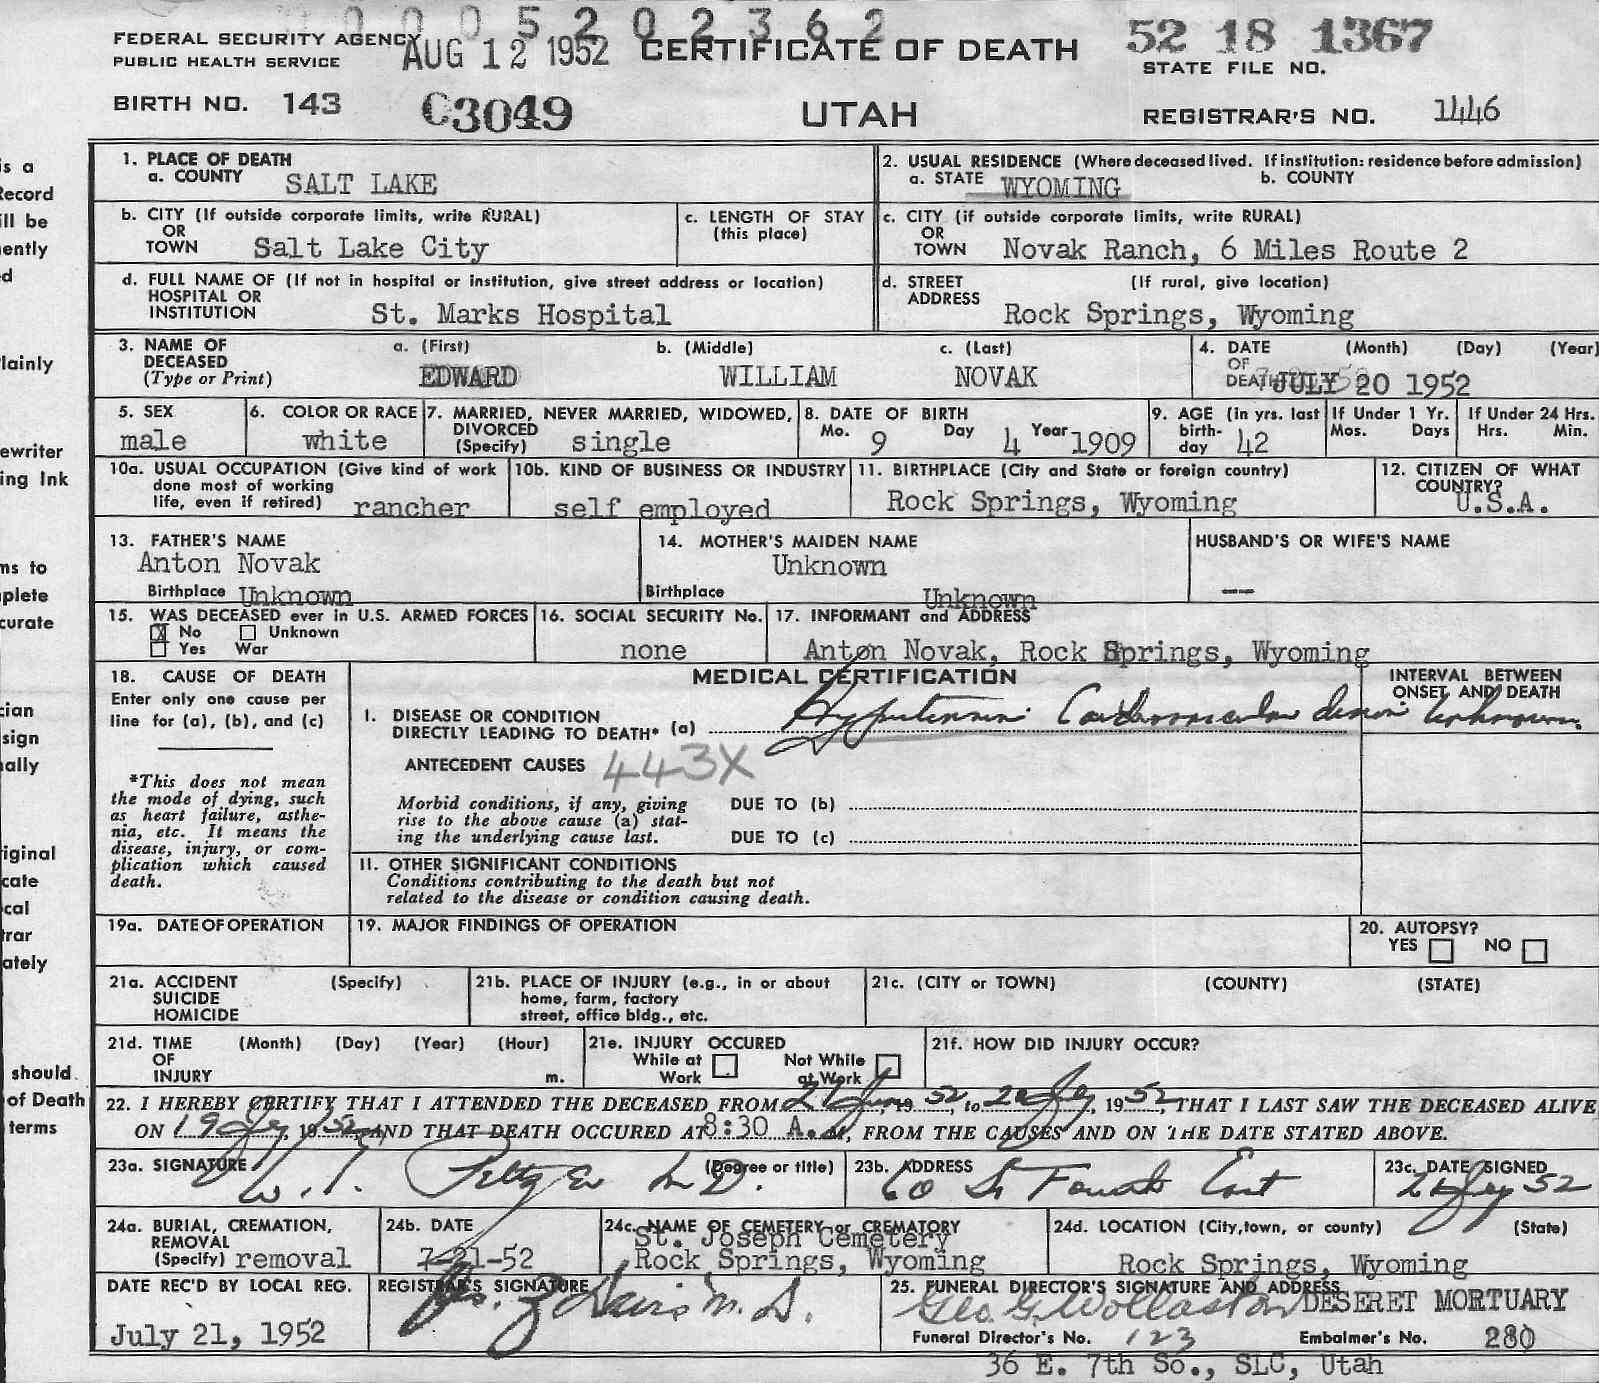 0 0 0 5 2 0 2 3 6 2
FEDERAL SECURITY AGENCY
PUBLIC HEALTH SERVICE
AUG 12 1952
CERTIFICATE OF DEATH
52 18 1367
STATE FILE NO.
BIRTH NO. 143
C3049
UTAH
REGISTRAR'S NO. 1446
is a
Record
ill be
nently
d
lainly
ewriter
ing Ink
ms to
plete
curate
cian
sign
ally
iginal
cate
cal
trar
ately
should
of Death
terms
1. PLACE OF DEATH
a. COUNTY SALT LAKE
2. USUAL RESIDENCE (Where deceased lived. If institution: residence before admission)
a. STATE WYOMING b. COUNTY
b. CITY (If outside corporate limits, write RURAL)
OR
TOWN Salt Lake City
c. LENGTH OF STAY
(this place)
c. CITY (if outside corporate limits, write RURAL)
OR
TOWN Novak Ranch, 6 Miles Route 2
d. FULL NAME OF (If not in hospital or institution, give street address or location)
HOSPITAL OR
INSTITUTION St. Marks Hospital
d. STREET (If rural, give location)
ADDRESS
Rock Springs, Wyoming
3. NAME OF DECEASED (Type or Print)
a. (First) b. (Middle) c. (Last)
EDWARD WILLIAM NOVAK
4. DATE OF DEATH (Month) (Day) (Year)
JULY 20 1952
5. SEX
male
6. COLOR OR RACE
white
7. MARRIED, NEVER MARRIED, WIDOWED,
DIVORCED
(Specify) single
8. DATE OF BIRTH
Mo. 9 Day 4 Year 1909
9. AGE (in yrs. last
birth-
day 42
If Under 1 Yr.
Mos. Days
If Under 24 Hrs.
Hrs. Min.
10a. USUAL OCCUPATION (Give kind of work
done most of working
life, even if retired) rancher
10b. KIND OF BUSINESS OR INDUSTRY
self employed
11. BIRTHPLACE (City and State or foreign country)
Rock Springs, Wyoming
12. CITIZEN OF WHAT
COUNTRY?
U.S.A.
13. FATHER'S NAME
Anton Novak
Birthplace Unknown
14. MOTHER'S MAIDEN NAME
Unknown
Birthplace Unknown
HUSBAND'S OR WIFE'S NAME
---
15. WAS DECEASED ever in U.S. ARMED FORCES
X No Unknown
Yes War
16. SOCIAL SECURITY No.
none
17. INFORMANT and ADDRESS
Anton Novak, Rock Springs, Wyoming
18. CAUSE OF DEATH
Enter only one cause per
line for (a), (b), and (c)
*This does not mean
the mode of dying, such
as heart failure, asthe-
nia, etc. It means the
disease, injury, or com-
plication which caused
death.
MEDICAL CERTIFICATION
INTERVAL BETWEEN
ONSET AND DEATH
I. DISEASE OR CONDITION
DIRECTLY LEADING TO DEATH* (a) Hypertensive Cardiovascular disease Unknown.
ANTECEDENT CAUSES 443X
Morbid conditions, if any, giving
rise to the above cause (a) stat-
ing the underlying cause last.
DUE TO (b)
DUE TO (c)
II. OTHER SIGNIFICANT CONDITIONS
Conditions contributing to the death but not
related to the disease or condition causing death.
19a. DATE OF OPERATION
19. MAJOR FINDINGS OF OPERATION
20. AUTOPSY?
YES NO
21a. ACCIDENT (Specify)
SUICIDE
HOMICIDE
21b. PLACE OF INJURY (e.g., in or about
home, farm, factory
street, office bldg., etc.
21c. (CITY or TOWN) (COUNTY) (STATE)
21d. TIME (Month) (Day) (Year) (Hour)
OF
INJURY m.
21e. INJURY OCCURED
While at Work
Not While at Work
21f. HOW DID INJURY OCCUR?
22. I HEREBY CERTIFY THAT I ATTENDED THE DECEASED FROM 1952, to 20 Jly, 1952, THAT I LAST SAW THE DECEASED ALIVE
ON 19 Jly, 1952, AND THAT DEATH OCCURED AT 8:30 A.M, FROM THE CAUSES AND ON THE DATE STATED ABOVE.
23a. SIGNATURE (Degree or title)
W. T. M D.
23b. ADDRESS
60 So Fourth East
23c. DATE SIGNED
21 Jly 52
24a. BURIAL, CREMATION,
REMOVAL
(Specify) removal
24b. DATE
7-21-52
24c. NAME OF CEMETERY or CREMATORY
St. Joseph Cemetery
Rock Springs, Wyoming
24d. LOCATION (City, town, or county) (State)
Rock Springs, Wyoming
DATE REC'D BY LOCAL REG.
July 21, 1952
REGISTRAR'S SIGNATURE
Davis M. D.
25. FUNERAL DIRECTOR'S SIGNATURE AND ADDRESS
Geo. G. Wollaston DESERET MORTUARY
Funeral Director's No. 123 Embalmer's No. 280
36 E. 7th So., SLC, Utah